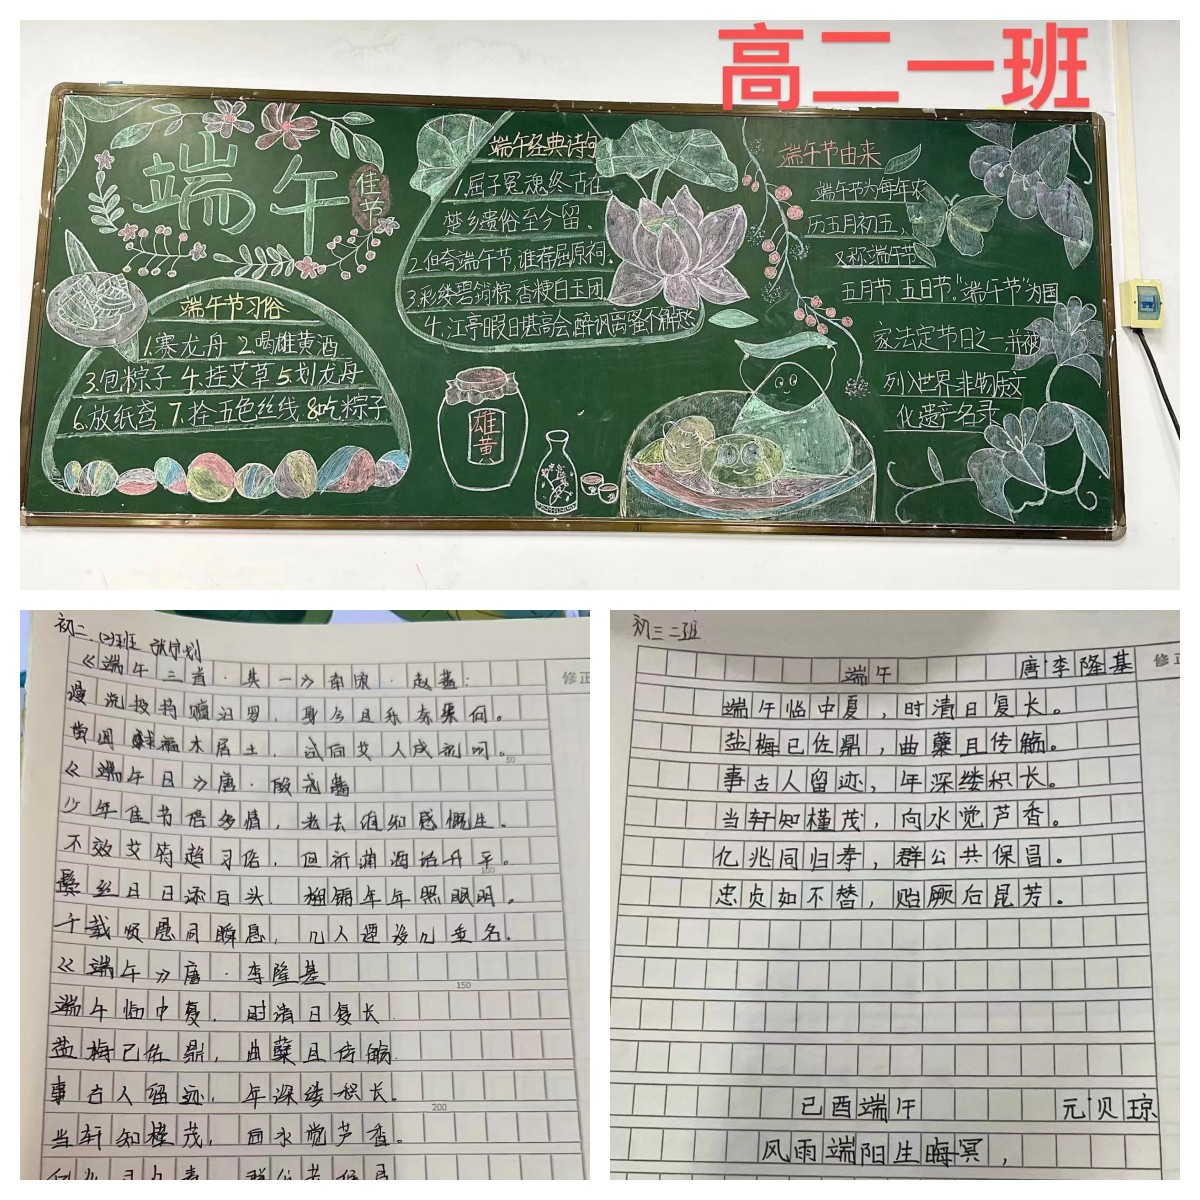 高二一班
端午
佳节
端午节习俗
1.赛龙舟 2.喝雄黄酒
3.包粽子 4.挂艾草 5.划龙舟
6.放纸鸢 7.拴五色丝线 8.吃粽子
端午经典诗句
1.屈子冤魂终古在
楚乡遗俗至今留、
2.但夸端午节,谁荐屈原祠.
3.彩缕碧筠粽,香粳白玉团
4.江亭暇日堪高会,醉讽离骚不解愁
雄黄
端午节由来
端午节为每年农
历五月初五,
又称端午节
五月节、五日节."端午节"为国
家法定节日之一,并被
列入世界非物质文
化遗产名录
初二.(2)班
《端午三首·其一》南宋·赵蕃:
修正
谩说投得赠汨罗,身今且乐奈渠何。
黄土,试问艾人成祝呵。
50
《端午日》唐·殷尧藩
少年佳节倍多情,老去谁知感慨生。
不效艾符趋习俗,但祈蒲酒话升平。
100
鬓丝日日添白头,榴锦年年照眼明。
千载贤愚同瞬息,几人湮没几垂名.
《端午》唐·李隆基
150
端午临中夏,时清日复长
盐梅已佐鼎,曲蘖且传觞.
事古人留迹,年深缕积长。
200
当轩知槿茂,向水觉芦香。
初三二班
端午 唐·李隆基
修正
端午临中夏,时清日复长。
盐梅已佐鼎,曲蘖且传觞。
事古人留迹,年深缕积长。
当轩知槿茂,向水觉芦香。
亿兆同归寿,群公共保昌。
忠贞如不替,贻厥后昆芳。
己酉端午 元·贝琼
风雨端阳生晦冥,